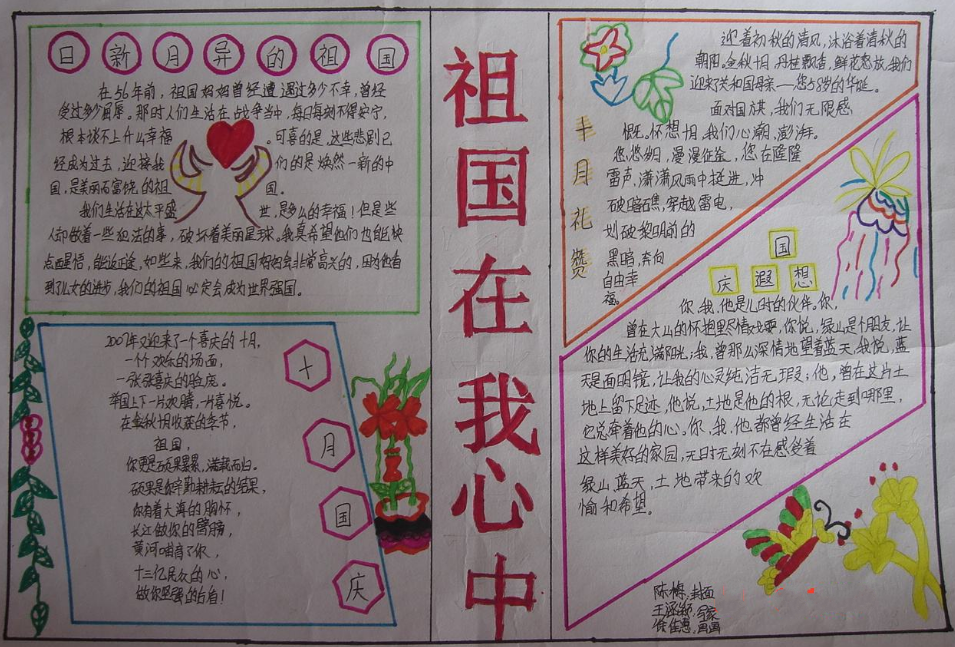 日新月异的祖国
在56年前，祖国妈妈曾经遭遇过多少不幸，曾经
受过多少屈辱。那时人们生活在战争当中，每时每刻不得安宁，
根本谈不上什么幸福。可喜的是，这些悲剧已
经成为过去，迎接我们的是焕然一新的中
国，是美丽而富饶的祖国。
我们生活在这太平盛世，是多么的幸福！但是些
人却做着一些犯法的事，破坏着美丽星球。我真希望他们也能快
点西星悟，能改正逾，如些来，我们的祖国妈妈会非常高兴的，因为他看
到了儿女的进步，我们的祖国必定会成为世界强国。
2007年又迎来了一个喜庆的十月，
一个欢乐的场面，
一张张喜庆的脸庞。
举国上下一片欢腾，一片喜悦。
在金秋10月收获的季节，
祖国，
你更是硕果累累，满载而归。
硕果是你辛勤耕耘的结果，
你有着大海的胸怀，
长江做你的臂膀，
黄河哺育了你，
十三亿民众的心，
做你坚强的后盾！
十月国庆
祖国在我心中
十月礼赞
迎着初秋的清风，沐浴着清秋的
朝阳。金秋十月，丹桂飘香，鲜花怒放，我们
迎来了共和国母亲——您58岁的华诞。
面对国旗，我们无限感
慨。怀想十月，我们心潮澎湃。
悠悠岁月，漫漫征途，您在隆隆
雷声，潇潇风雨中挺进，冲
破暗礁，穿越雷电，
划破黎明前的
黑暗，奔向
自由幸
福。
国
庆遐想
你、我、他是儿时的伙伴。你，
曾在大山的怀抱里尽情女耍，你说，绿山是个朋友，让
你的生活充满阳光；我，曾那么深情地望着蓝天，我说，蓝
天是面明镜，让我的心灵纯洁无瑕；他，曾在这片土
地上留下足迹，他说，土地是他的根，无论走到哪里，
它总牵着他的心。你、我、他都曾经生活在
这样美好的家园，无时无刻不在感受着
绿山、蓝天、土地带来的欢
愉和希望。
陈梅，封面